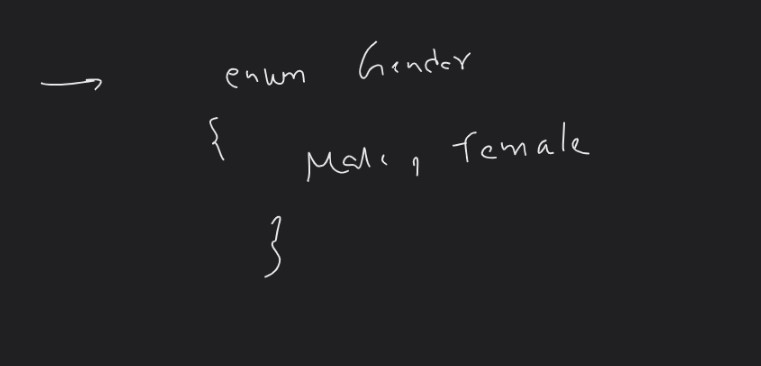 → enum Gender
{
Male, female
}